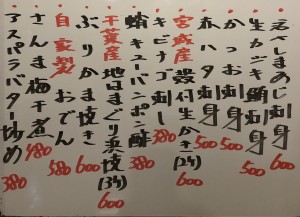 生カジキ鮪刺身 600
かつお刺身 500
赤ハタ刺身 500
宮城産 殻付生かき(2ケ) 600
キビナゴ刺し 380
蛸キューバンポン酢 380
千葉産 地はまぐり浜焼(3ケ) 600
ぶりかま焼き 600
自家製 おでん 580
さんま梅干煮 480
アスパラバター炒め 380